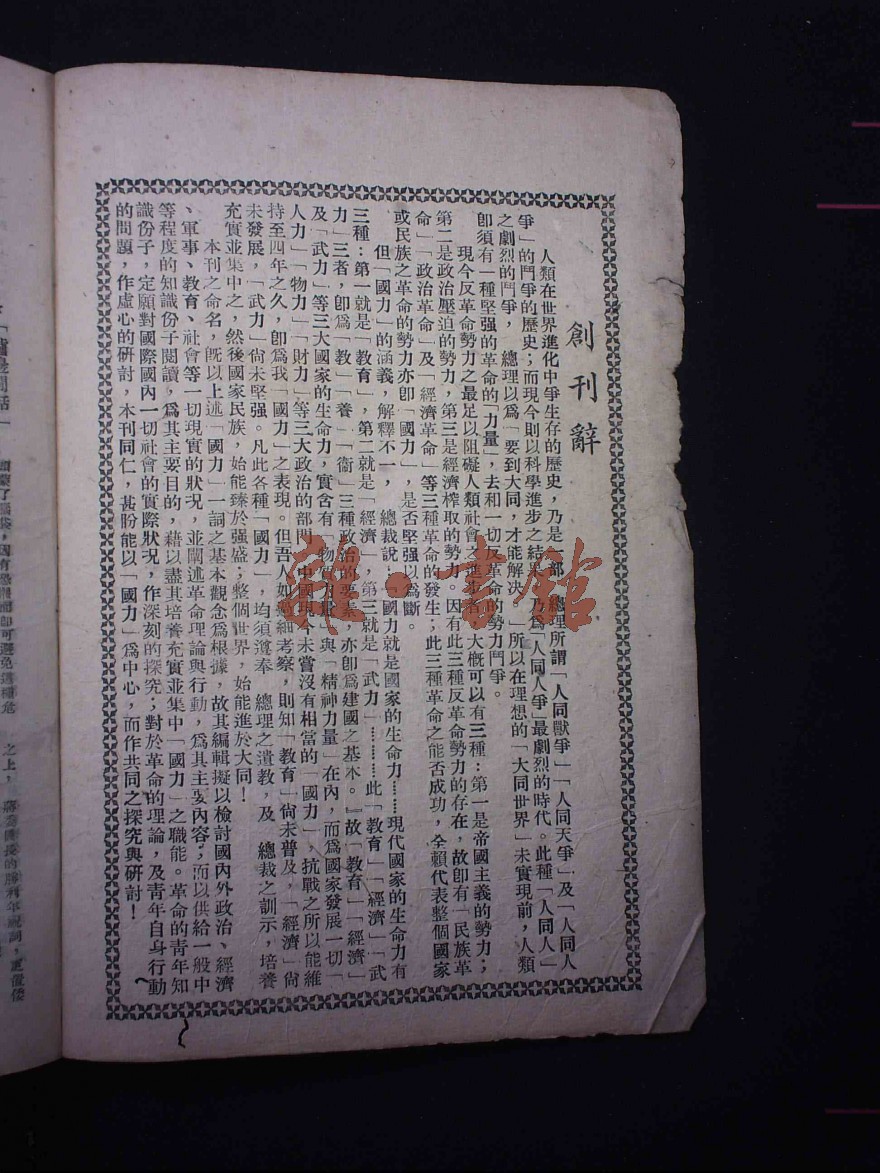 創刊辭
人類在世界進化中爭生存的歷史，乃是一部　總理所謂「人同獸爭」「人同天爭」及「人同人
爭」的鬥爭的歷史；而現今則以科學進步之結果，乃爲「人同人爭」最劇烈的時代。此種「人同人」
之劇烈的鬥爭，　總理以爲「要到大同，才能解決，」所以在理想的「大同世界」未實現前，人類
卽須有一種堅强的革命的「力量」，去和一切反革命的勢力鬥爭。
現今反革命勢力之最足以阻礙人類社會之進步者，大槪可以有三種：第一是帝國主義的勢力；
第二是政治壓迫的勢力，第三是經濟榨取的勢力。因有此三種反革命勢力的存在，故卽有「民族革
命」「政治革命」及「經濟革命」等三種革命的發生；此三種革命之能否成功，全賴代表整個國家
或民族之革命的勢力亦卽「國力」，是否堅强以爲斷。
但「國力」的涵義，解釋不一，　總裁說：「國力就是國家的生命力……現代國家的生命力有
三種：第一就是「教育」，第二就是「經濟」，第三就是「武力」…………此「教育」「經濟」「武
力」三者，卽爲「教」「養」「衞」三種政治的要素，亦卽爲建國之基本。』故「教育」「經濟」
及「武力」等三大國家的生命力，實含有「物質力量」與「精神力量」在內，而爲國家發展一切「
人力」「物力」「財力」等三大政治的部門，中國現今未嘗沒有相當的「國力」，抗戰之所以能維
持至四年之久，卽爲我「國力」之表現。但吾人如過細考察，則知「教育」尙未普及，「經濟」尙
未發展，「武力」尙未堅强。凡此各種「國力」，均須遵奉　總理之遺教，及　總裁之訓示，培養
充實並集中之，然後國家民族，始能臻於强盛；整個世界，始能進於大同！
本刊之命名，旣以上述「國力」一詞之基本觀念爲根據，故其編輯擬以檢討國內外政治、經濟
、軍事、教育、社會等一切現實的狀況，並闡述革命理論與行動，爲其主要內容；而以供給一般中
等程度的知識份子閱讀，爲其主要目的，藉以盡其培養充實並集中「國力」之職能。革命的靑年知
識份子，定願對國際國內一切社會的實際狀況，作深刻的探究；對於革命的理論，及靑年自身行動
的問題，作虛心的研討，本刊同仁，甚盼能以「國力」爲中心，而作共同之探究與研討！
雜·書館